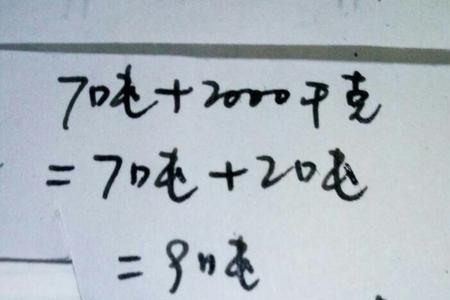 70吨+2000千克
=70吨+20吨
=90吨